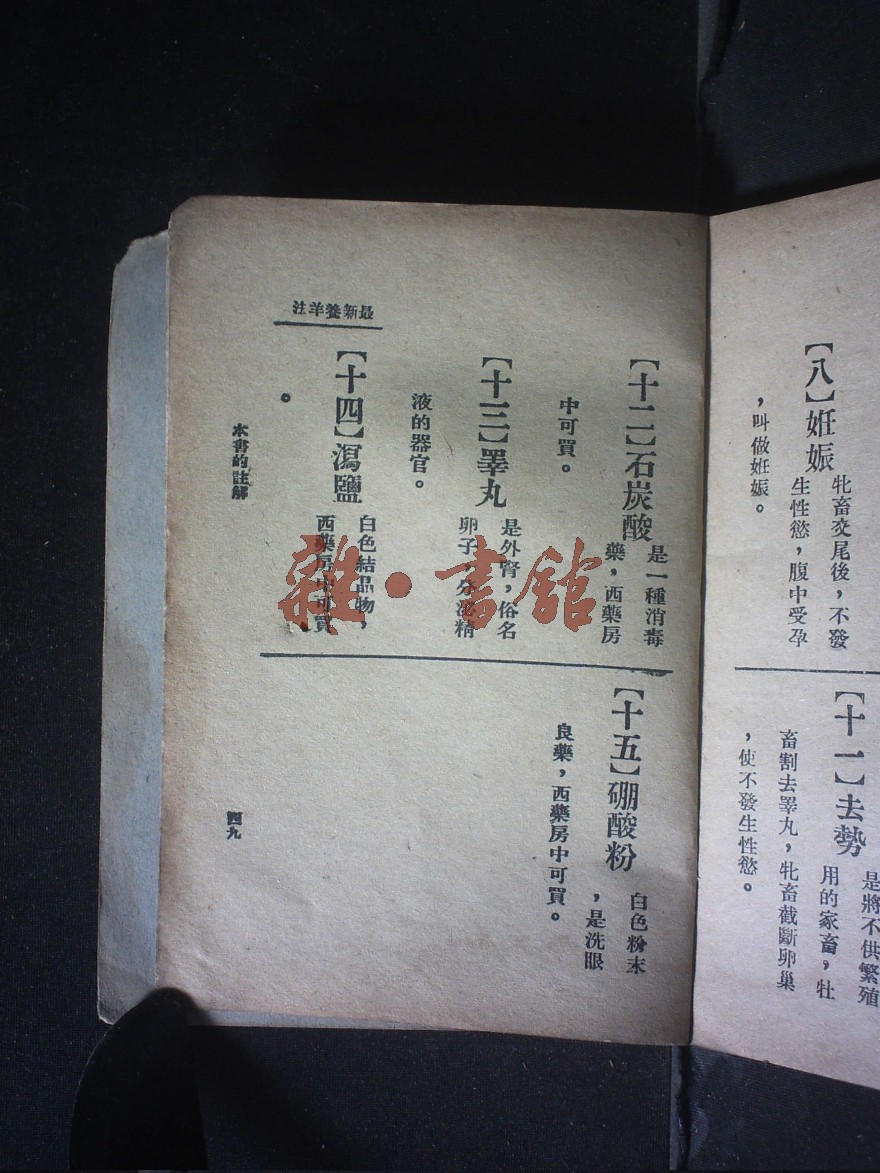 【八】妊娠
牝畜交尾後，不發
生性慾，腹中受孕
，叫做妊娠。
【十一】去勢
是將不供繁殖
用的家畜，牡
畜割去睪丸，牝畜截斷卵巢
，使不發生性慾。
最新養羊注
【十二】石炭酸
是一種消毒
藥，西藥房
中可買。
【十三】睪丸
是外腎，俗名
卵子，分泌精
液的器官。
【十四】瀉鹽
白色結晶物，
西藥房中可買
。
【十五】硼酸粉
白色粉末
，是洗眼
良藥，西藥房中可買。
本書的註解
四九
雜·書館